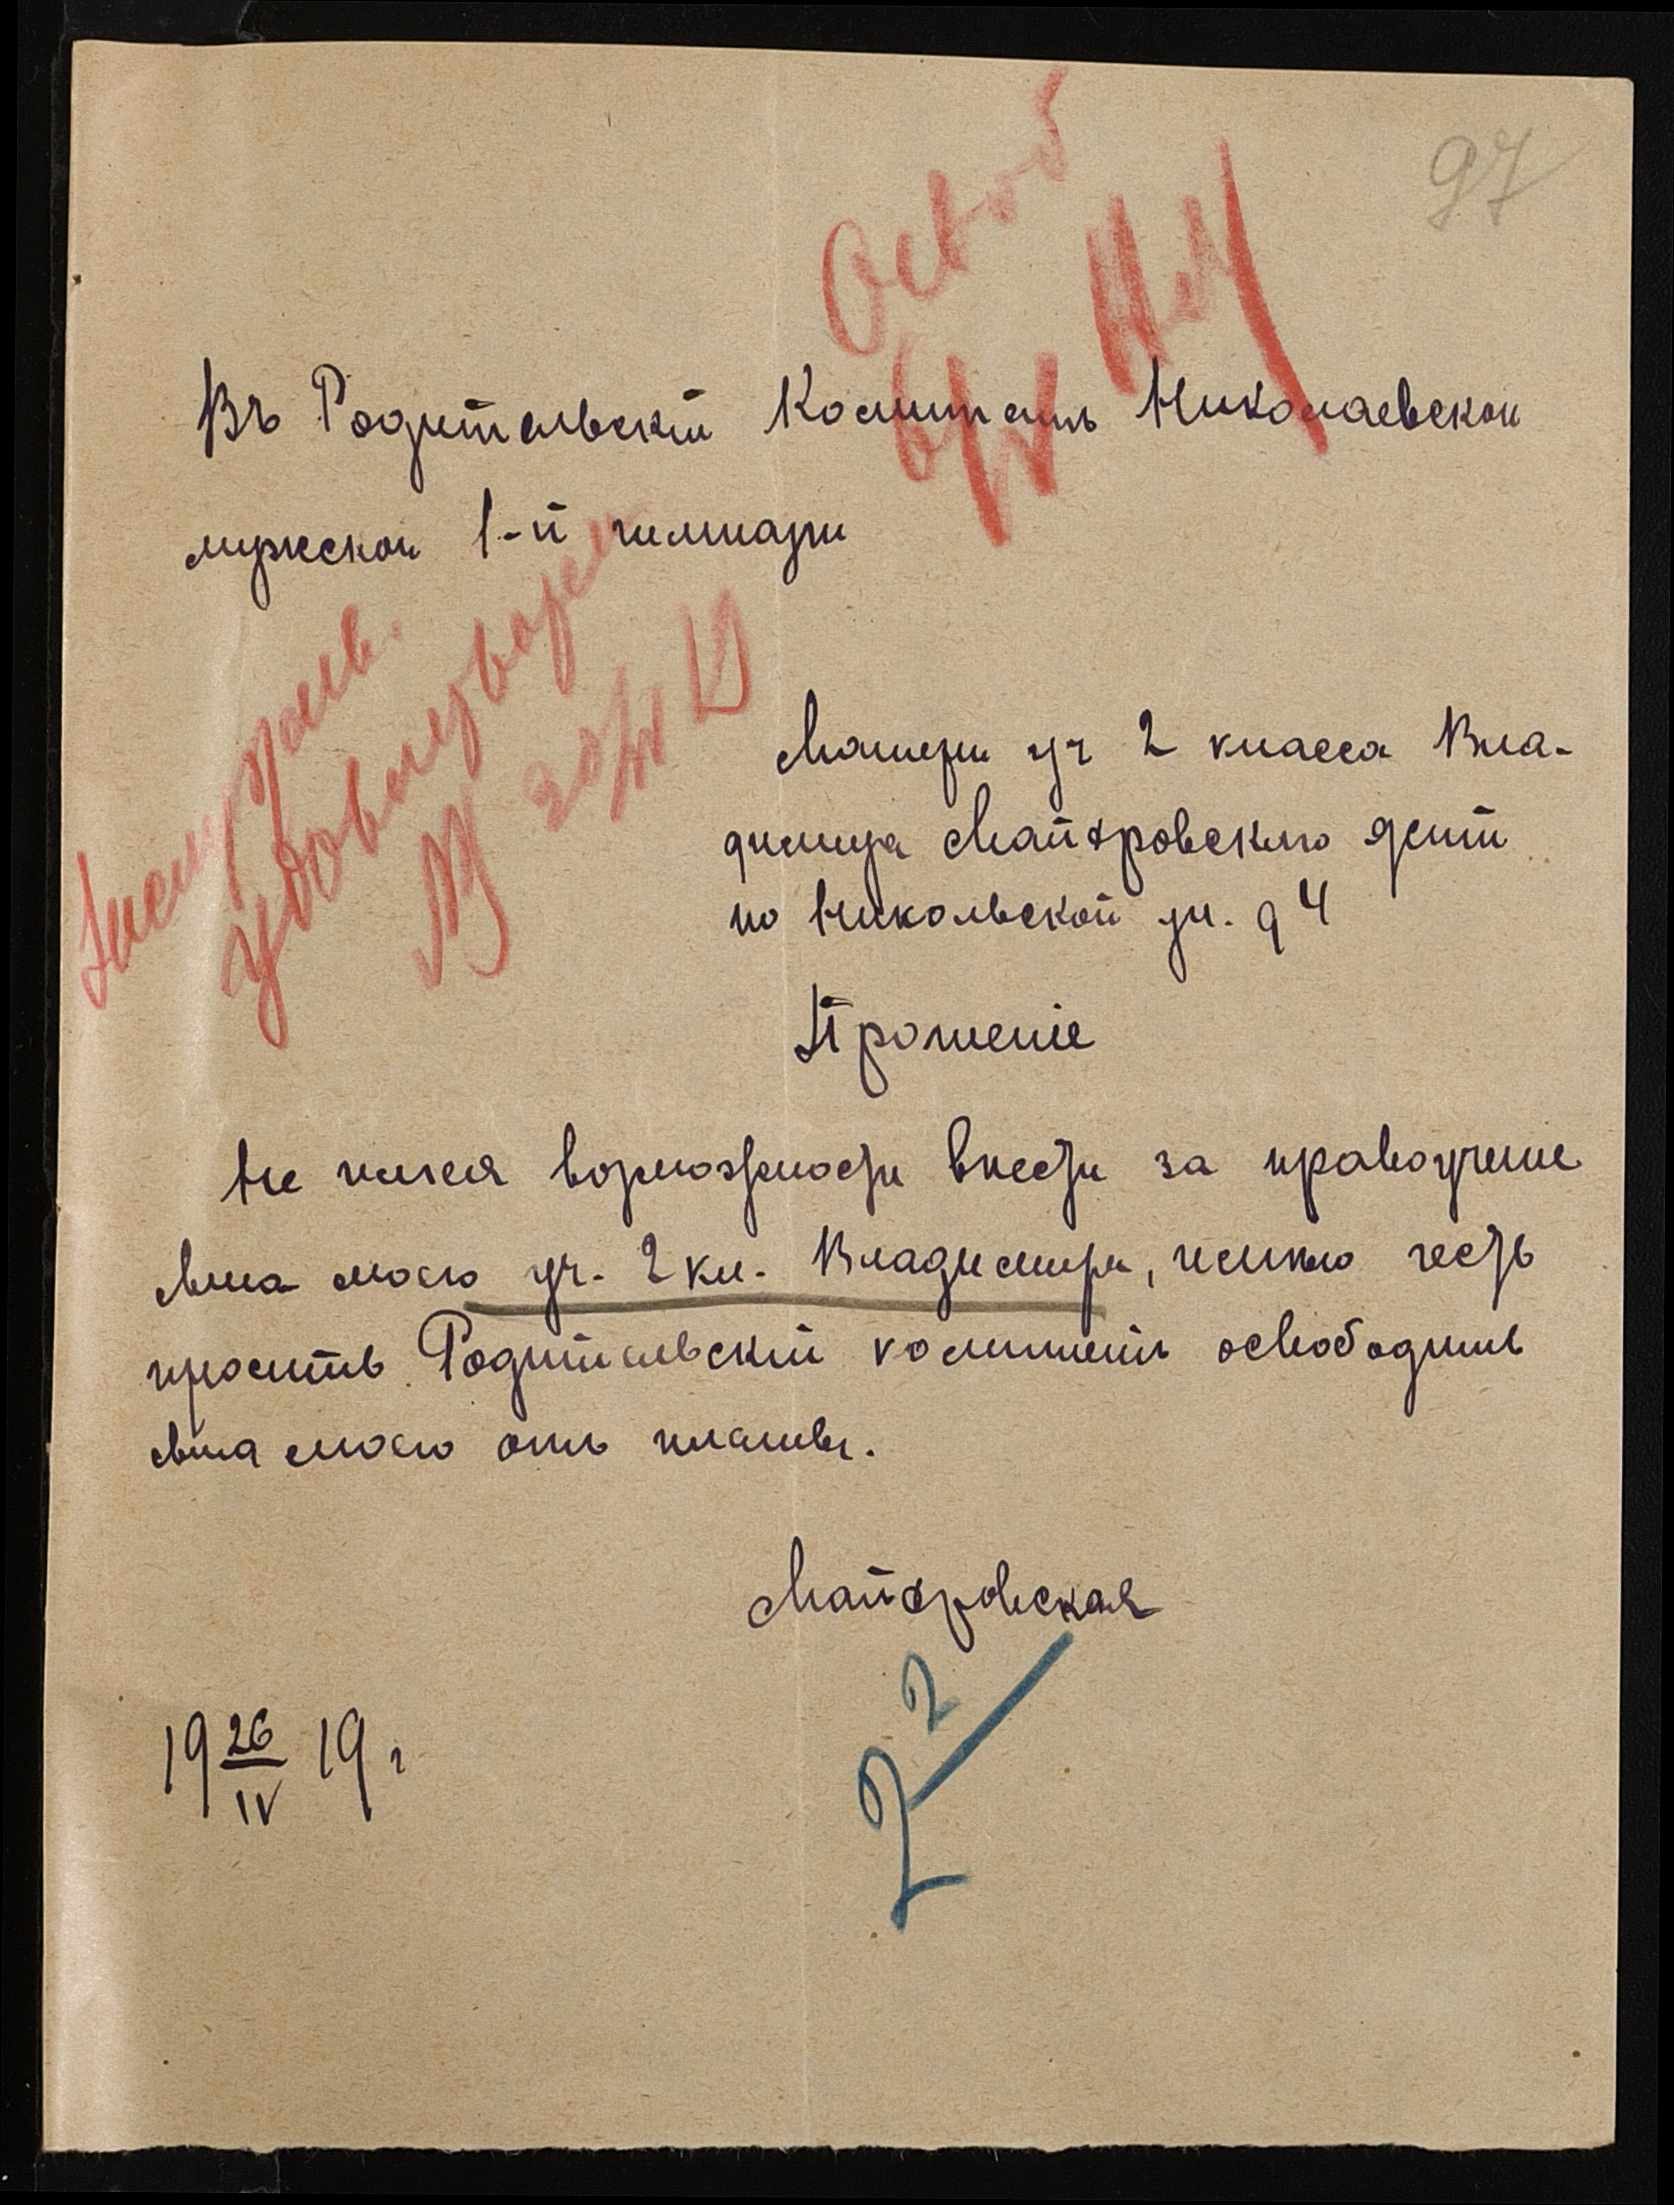 97
Освоб
Въ Родительскій Комитетъ Николаевской
мужской 1-й гимназіи
удовлетворен
Матери уч 2 класса Вла-
димира Майхровскаго жит
по Никольской ул. д 4
Прошеніе
Не имея возможности внести за правоученіе
сына моего уч. 2 кл. Владимира, имѣю честь
просить Родительскій комитетъ освободить
сына моего отъ платы.
Майхровская
19 26/IV 19 г
2 2